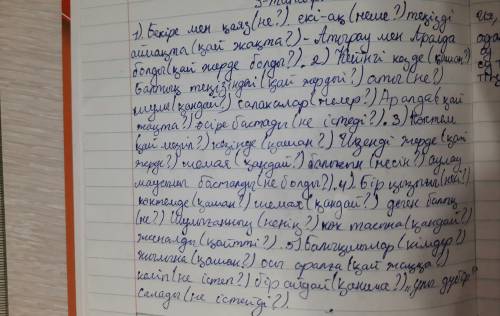 3-тапсырма
1). Бекіре мен қаяз(не?) екі-ақ (неше?) теңізді
аймақта (қай жақта?) - Атырау мен Аралда
болды(қай жерде болды?). 2) Кейінгі кезде (қашан?)
Балтық теңізіндегі (қай жердегі?) аты(не?)
шулы(қандай?) салакалар(нелер?) Аралда(қай
жақта?) өсіре бастады (не істеді?). 3) Көктем
(қай мезгіл?) кезінде (қашан?) Өзенді жерде (қай
жерде?) шомая (қандай?) балығын (несін?) аулау
маусымы басталды(не болды?). 4) Бір қызығы(несі?)
көктемде (қашан?) шомая (қандай?) деген балық
(не?) Шулығанның (ненің?) көк тасына (қандай?)
жиналады (қайтті?). 5) Балықшылар (кімдер?)
жылына (қашан?) осы аралға (қай жаққа?)
келіп(не істеп?) бір айдай (қанша?) „ұлы дүбір"
салады (не істейді?).